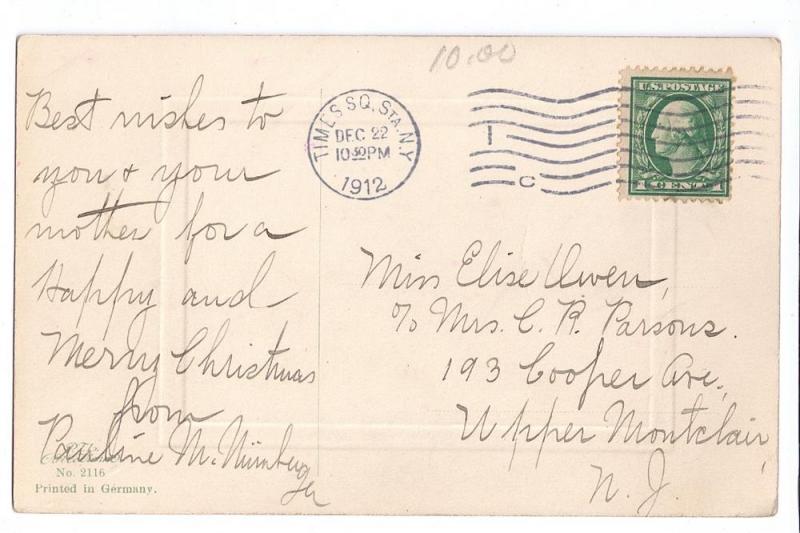 10.00
Best wishes to
you & your
mother for a
Happy and
Merry Christmas
from
Pauline M. Nürnberger
No. 2116
Printed in Germany.
TIMES SQ. STA. N.Y.
DEC 22
10 30 PM
1912
1
C
U.S. POSTAGE
1 CENT 1
Miss Elise Owen,
c/o Mrs. C. R. Parsons.
193 Cooper Ave,
Upper Montclair,
N. J.